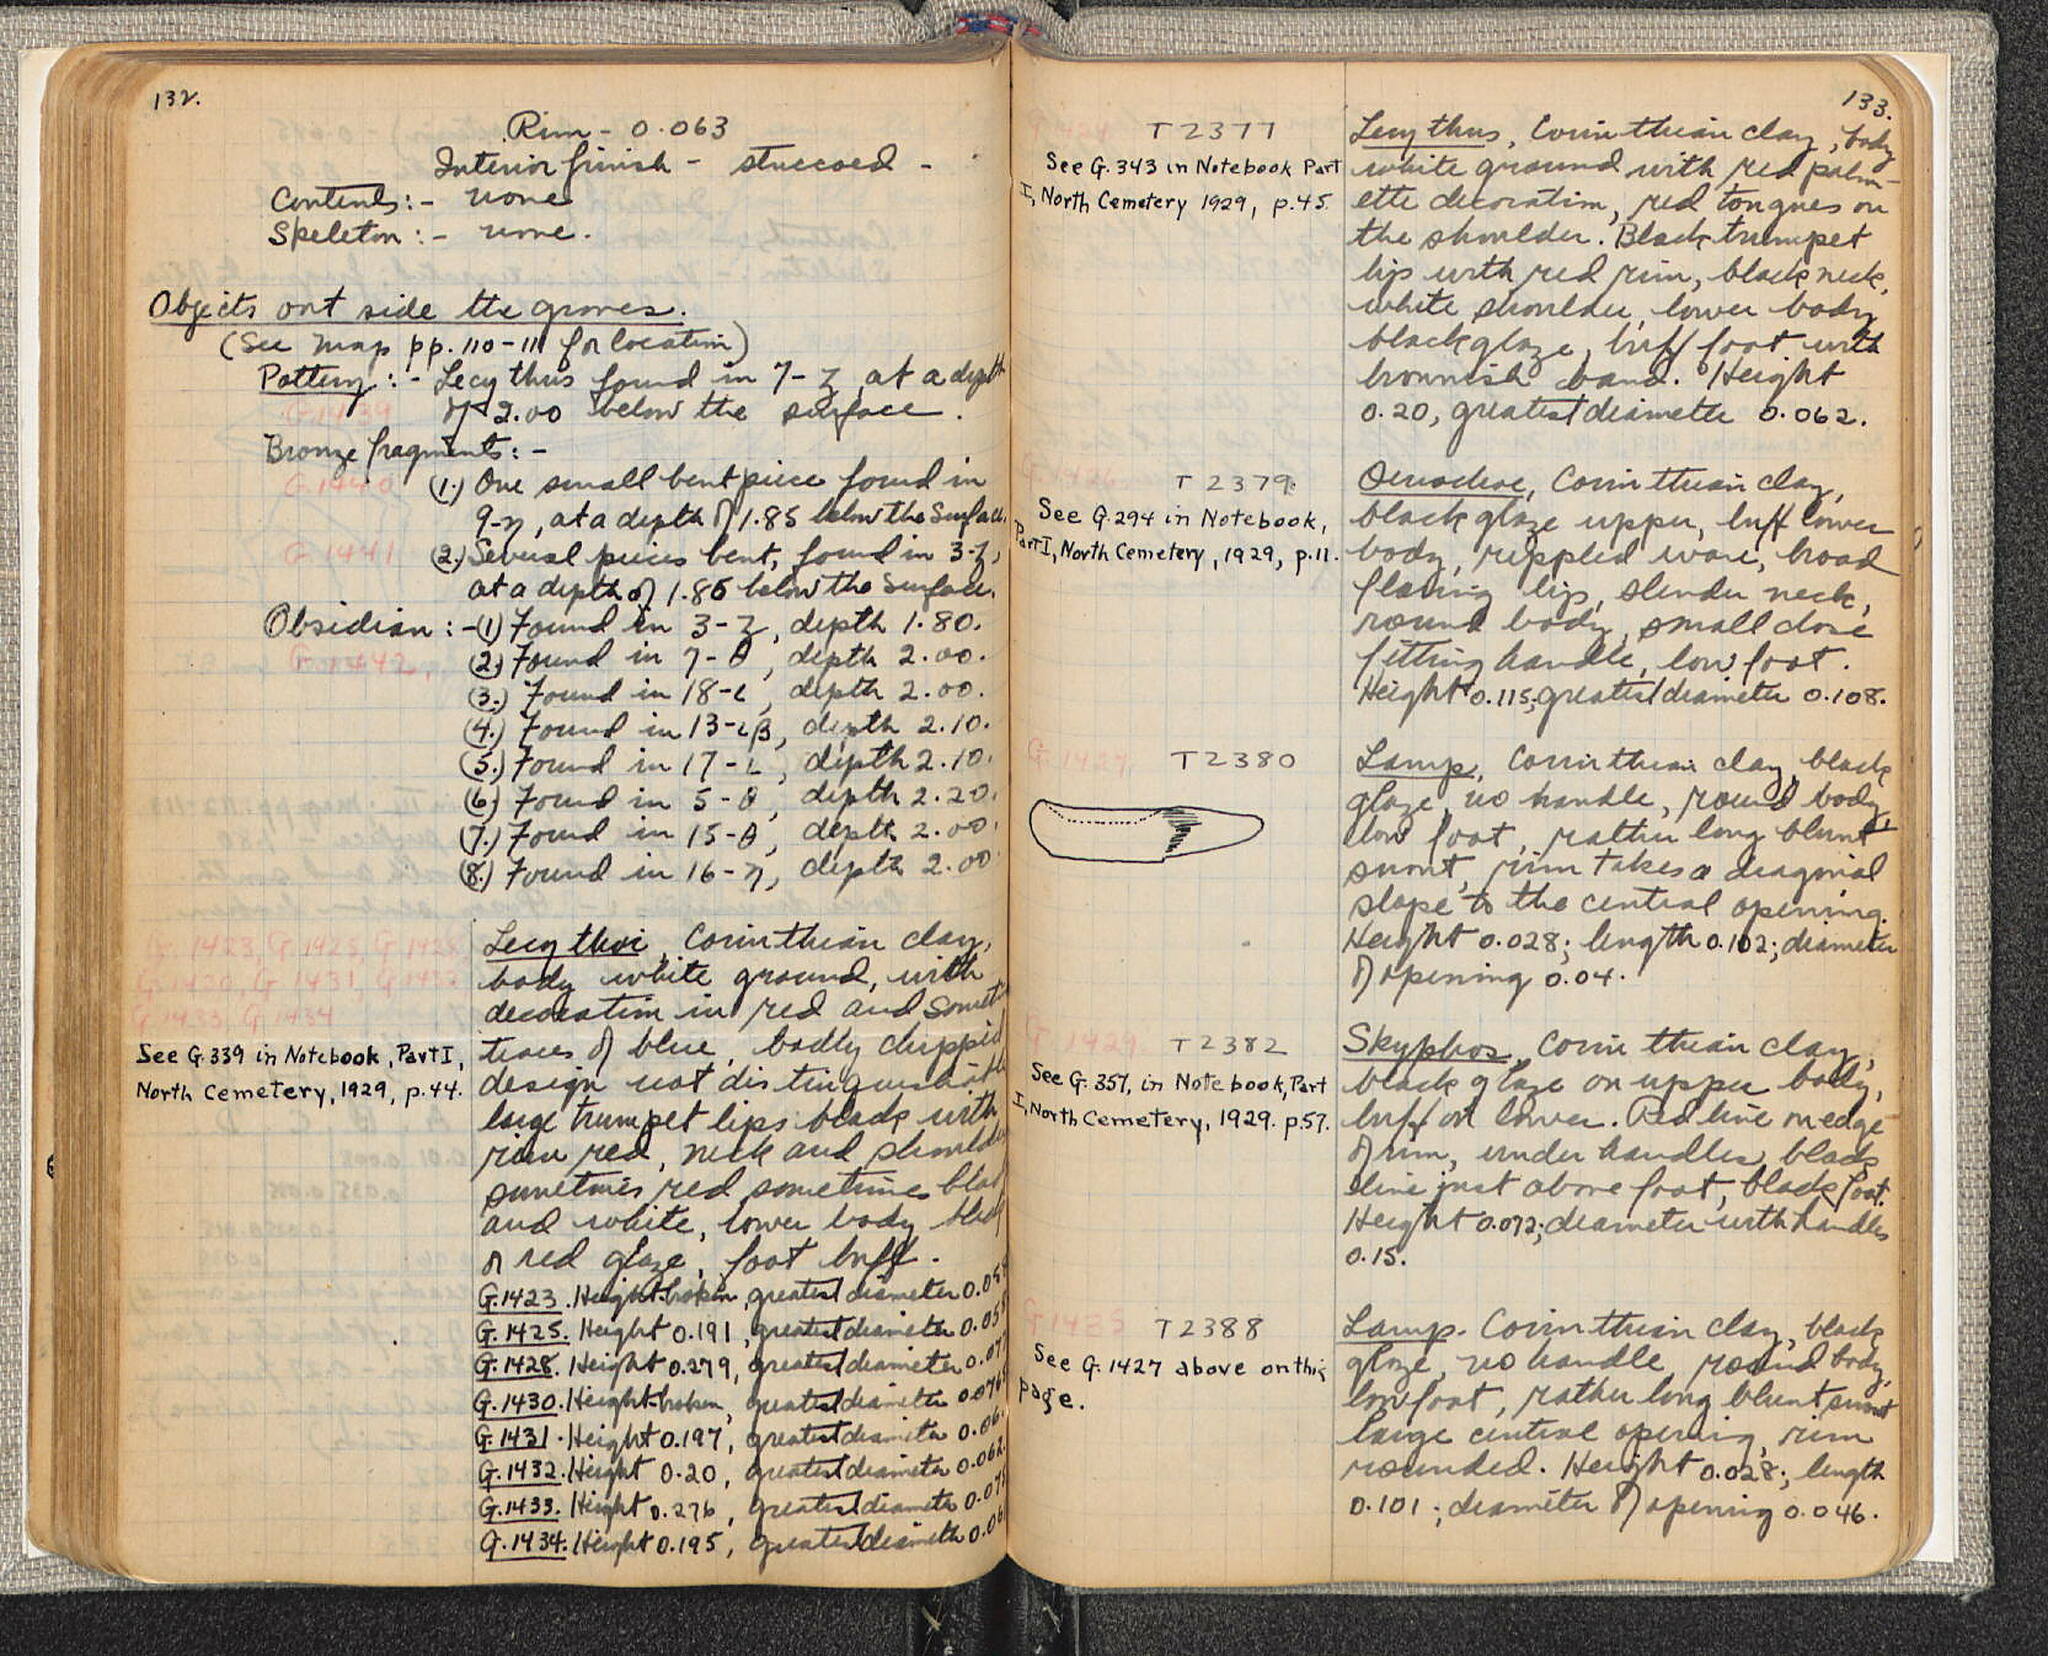 132.
Rim - 0.063
Interior finish - stuccoed -
Contents:- none
Skeleton:- none.
Objects out side the graves.
(See map pp. 110-111 for location)
Pottery:- Lecythus found in 7-Z, at a depth
G.1439
of 2.00 below the surface.
Bronze fragments:-
G.1440 (1.) One small bent piece found in
9-η, at a depth of 1.85 below the surface.
G.1441 (2.) Several pieces bent, found in 3-Z,
at a depth of 1.85 below the surface.
Obsidian:-(1) Found in 3-Z, depth 1.80.
G.1442. (2.) Found in 7-θ, depth 2.00.
(3.) Found in 18-ι, depth 2.00.
(4.) Found in 13-ιβ, depth 2.10.
(5.) Found in 17-ι, depth 2.10.
(6.) Found in 5-θ, depth 2.20.
(7.) Found in 15-θ, depth 2.00.
(8.) Found in 16-η, depth 2.00
G.1423, G.1425, G.1428
G.1430, G.1431, G.1432
G.1433, G.1434
See G.339 in Notebook, Part I,
North Cemetery, 1929, p.44.
Lecythoi, Corinthian clay,
body white ground, with
decoration in red and
traces of blue, badly chipped
design not distinguishable
large trumpet lips black with
rim red, neck and shoulder
sometimes red sometimes black
and white, lower body black
or red glaze, foot buff.
G.1423. Height-broken, greatest diameter
G.1425. Height 0.191, greatest diameter
G.1428. Height 0.279, greatest diameter
G.1430. Height-broken, greatest diameter
G.1431. Height 0.197, greatest diameter
G.1432. Height 0.20, greatest diameter 0.062.
G.1433. Height 0.276, greatest diameter
G.1434. Height 0.195, greatest diameter
133.
T 2377
See G.343 in Notebook Part
I, North Cemetery 1929, p.45.
Lecythus, Corinthian clay, body
white ground with red palm-
ette decoration, red tongues on
the shoulder. Black trumpet
lips with red rim, black neck,
white shoulder, lower body
black glaze, buff foot with
brownish band. Height
0.20, greatest diameter 0.062.
G.1426
T 2379.
See G.294 in Notebook,
Part I, North Cemetery, 1929, p.11.
Oenochoe, Corinthian clay,
black glaze upper, buff lower
body, rippled ware, broad
flaring lips, slender neck,
round body, small close
fitting handle, low foot.
Height 0.115; greatest diameter 0.108.
G.1427. T 2380
Lamp, Corinthian clay, black
glaze, no handle, round body,
low foot, rather long blunt
snout, rim takes a diagonal
slope to the central opening.
Height 0.028; length 0.102; diameter
of opening 0.04.
G.1429 T 2382
See G.357, in Notebook, Part
I, North Cemetery, 1929. p.57.
Skyphos, Corinthian clay,
black glaze on upper body,
buff on lower. Red line on edge
of rim, under handles, black
line just above foot, black foot.
Height 0.092; diameter with handles
0.15.
G.1435 T 2388
See G.1427 above on this
page.
Lamp. Corinthian clay, black
glaze, no handle, round body,
low foot, rather long blunt snout
large central opening, rim
rounded. Height 0.028; length
0.101; diameter of opening 0.046.